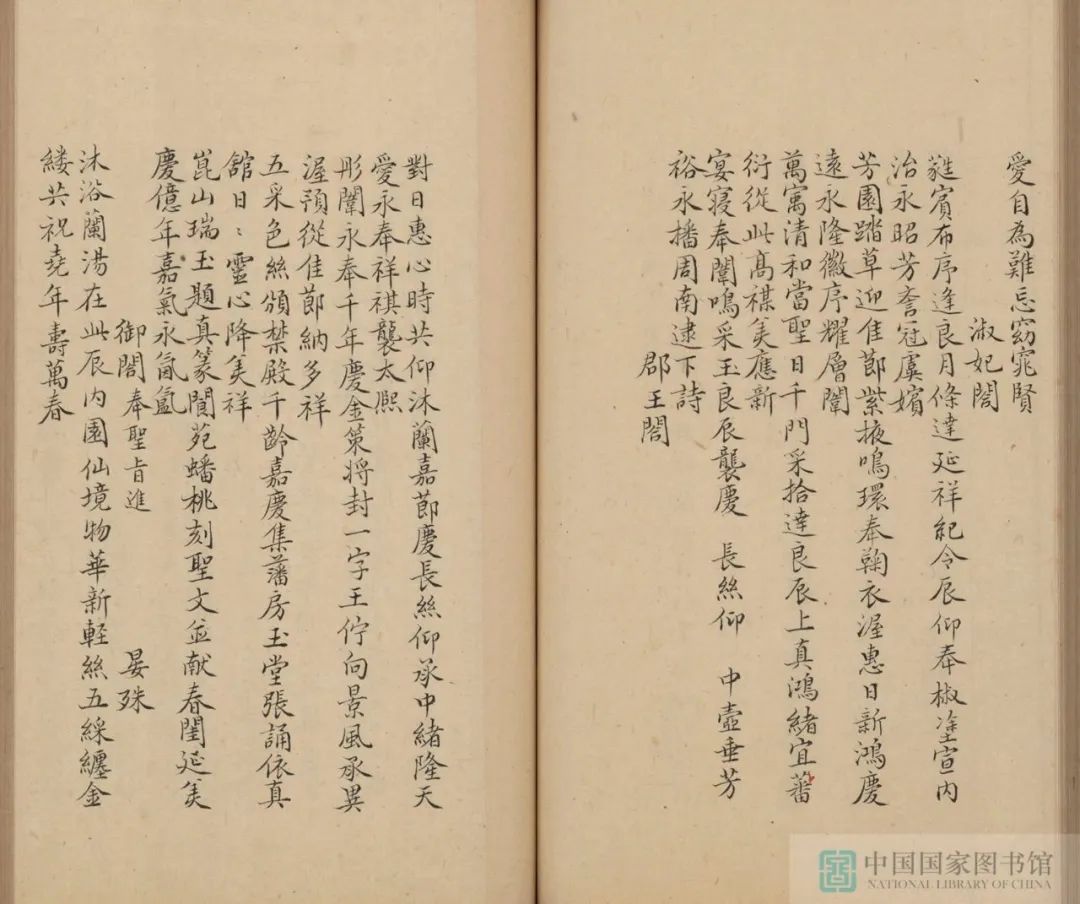 愛自為難忘窈窕賢
淑妃閤
蕤賓布序逢良月條達延祥紀令辰仰奉椒塗宣内
治永昭芳壼冠虞嬪
芳園踏草迎佳節紫掖鳴環奉鞠衣渥惠日新鴻慶
遠永隆徽序耀層闈
萬寓清和當聖日千門采拾達良辰上真鴻緒宜蕃
衍從此高禖美應新
宴寝奉闈鳴采玉良辰襲慶 長絲仰 中壼垂芳
裕永播周南逮下詩
郡王閤
對日惠心時共仰沐蘭嘉節慶長絲仰承中緒隆天
愛永奉祥祺襲太熈
彤闈永奉千年慶金策将封一字王佇向景風承異
渥預從佳節納多祥
五采色絲頒禁殿千齡嘉慶集藩房玉堂張誦依真
館日〻靈心降美祥
崑山瑞玉題真篆閬苑蟠桃刻聖文並献春闈延美
慶億年嘉氣永氤氲
御閤奉聖旨進 晏殊
沐浴蘭湯在此辰内園仙境物華新輕絲五綵纏金
縷共祝堯年壽萬春
中国国家图书馆
NATIONAL LIBRARY OF CHINA